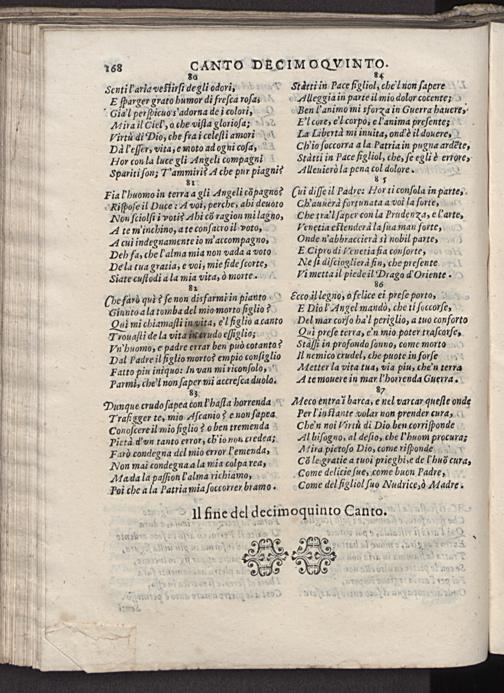 168 CANTO DECIMOQVINTO.
80
Senti l'aria vestirsi de gli odori,
E sparger grato humor di fresca rosa;
Gia'l perspicuo s'adorna de i colori,
Mira il Ciel, ò che vista gloriosa;
Virtù di Dio, che fra i celesti amori
Dà l'esser, vita, e moto ad ogni cosa,
Hor con la luce gli Angeli compagni
Spariti son; T'ammiri? A che pur piagni?
81
Fia l'huomo in terra a gli Angeli cõpagno?
Rispose il Duce: A voi, perche, ahi devoto
Non sciolsi i voti? Ahi cõ ragion mi lagno,
A te m'inchino, a te consacro il voto,
A cui indegnamente io m'accompagno,
Deh fa, che l'alma mia non vada a voto
De la tua gratia, e voi, mie fide scorte,
Siate custodi a la mia vita, ò morte.
82
Che farò quì? se non disfarmi in pianto
Giunto a la tomba del mio morto figlio?
Quì mi chiamasti in vita, e'l figlio a canto
Trouasti de la vita in crudo essiglio;
Vn'huomo, e padre errar ben può cotanto?
Dal Padre il figlio morto? empio consiglio
Fatto piu iniquo: In van mi riconsolo,
Parmi, che'l non saper mi accresca duolo.
83
Dunque crudo sapea con l'hasta horrenda
Trafigger te, mio Ascanio? e non sapea
Conoscere il mio figlio? o ben tremenda
Pietà d'vn tanto error, ch'io non credea;
Farò condegna del mio error l'emenda,
Non mai condegna a la mia colpa rea,
Ma da la passion l'alma richiamo,
Poi che a la Patria mia soccorrer bramo.
84
Stàtti in Pace figliol, che'l non sapere
Alleggia in parte il mio dolor cocente;
Ben l'animo mi sforza in Guerra hauere,
E'l core, e'l corpo, e l'anima presente;
La Libertà mi inuita, ond'è il douere,
Ch'io soccorra a la Patria in pugna ardēte,
Stàtti in Pace figliol, che, se egli è errore,
Alleuierò la pena col dolore.
85
Cui disse il Padre: Hor ti consola in parte,
Ch'auuerà fortunata a voi la sorte,
Che tra'l saper con la Prudenza, e l'arte,
Venetia estenderà la sua man forte,
Onde n'abbraccierà sì nobil parte,
E Cipro di Venetia fia consorte,
Ne si discioglierà fin, che presente
Vi metta il piede il Drago d'Oriente.
86
Ecco il legno, ò felice ei prese porto,
E Dio l'Angel mandò, che ti soccorse,
Del mar corso ha'l periglio, a tuo conforto
Quì prese terra, e'n mio poter trascorse,
Stassi in profondo sonno, come morto
Il nemico crudel, che puote in forse
Metter la vita tua, via piu, che'n terra
A te mouere in mar l'horrenda Guerra.
87
Meco entra'i barca, e nel varcar queste onde
Per l'instante volar non prender cura,
Che'n noi Virtù di Dio ben corrisponde
Al bisogno, al desio, che l'huom procura;
Mira pietoso Dio, come risponde
Cõ le gratie a tuoi prieghi: e de l'huõ cura,
Come delitie sue, come buon Padre,
Come del figliol suo Nudrice, ò Madre.
Il fine del decimoquinto Canto.